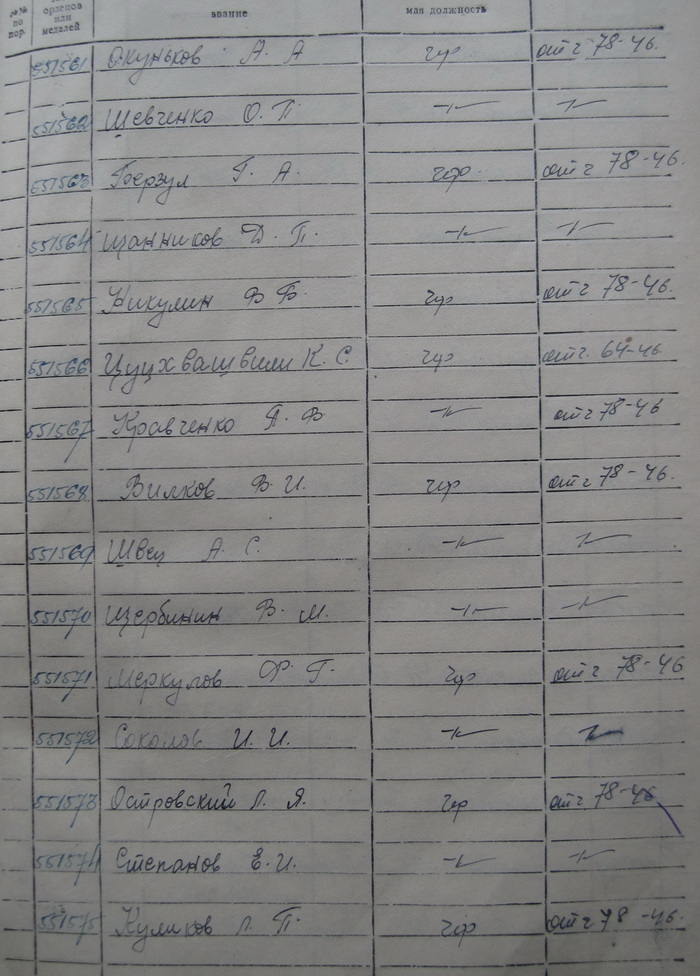 №№ по пор. орденов или медалей звание мая должность
551561 Окуньков А. А гр от г 78-46.
551562 Шевченко О. П -"- -"-
551563 Берзул Г. А. гр. от г 78-46.
551564 Щанников Д. П. -"- -"-
551565 Никулин В В. гр от г 78-46.
551566 Цуцхвашвили К. С гр от г. 64-46
551567 Кравченко П. В -"- от г 78-46
551568 Вилков В. И. гр от г 78-46.
551569 Швец А. С. -"- -"-
551570 Щербинин В. М. -"- -"-
551571 Меркулов Ф. Г. гр от г 78-46
551572 Соколов И. И. -"- -"-
551573 Островский Л. Я. гр от г 78-46
551574 Степанов Е. И. -"- -"-
551575 Куликов Л. П. гр от г 78-46.